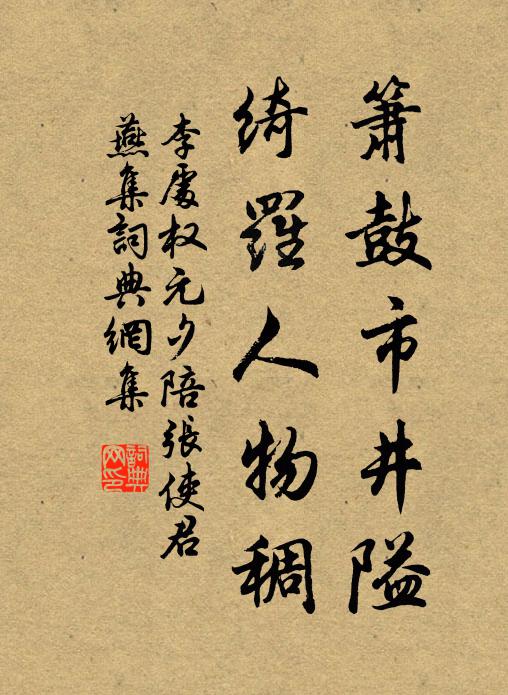 簫鼓市井隘
綺羅人物稠
李處权元夕陪張使君
燕集詞典網集
詞典网印